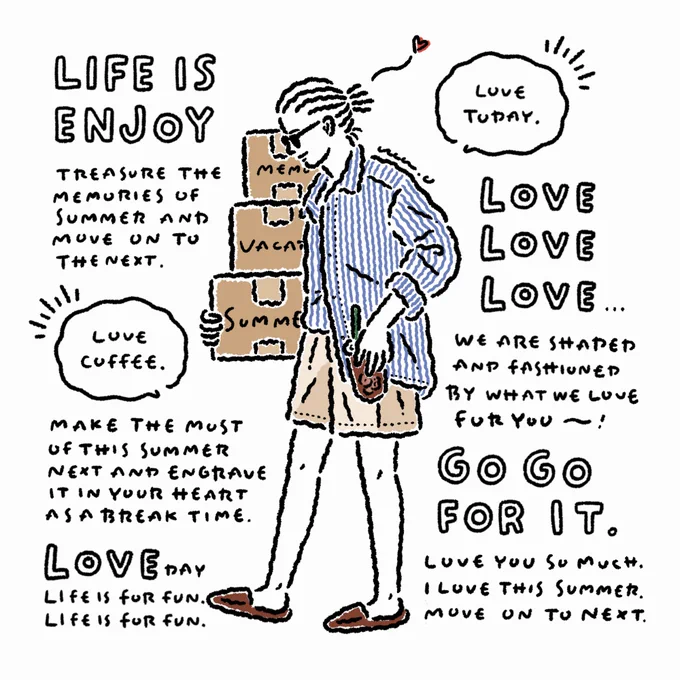 LIFE IS
ENJOY
TREASURE THE
MEMORIES OF
SUMMER AND
MOVE ON TO
THE NEXT.
LOVE
COFFEE.
MAKE THE MOST
OF THIS SUMMER
NEXT AND ENGRAVE
IT IN YOUR HEART
AS A BREAK TIME.
LOVE DAY
LIFE IS FOR FUN.
LIFE IS FOR FUN.
MEMO
VACAT
SUMME
LOVE
TODAY.
LOVE
LOVE
LOVE...
WE ARE SHAPED
AND FASHIONED
BY WHAT WE LOVE
FOR YOU ~!
GO GO
FOR IT.
LOVE YOU SO MUCH.
I LOVE THIS SUMMER.
MOVE ON TO NEXT.